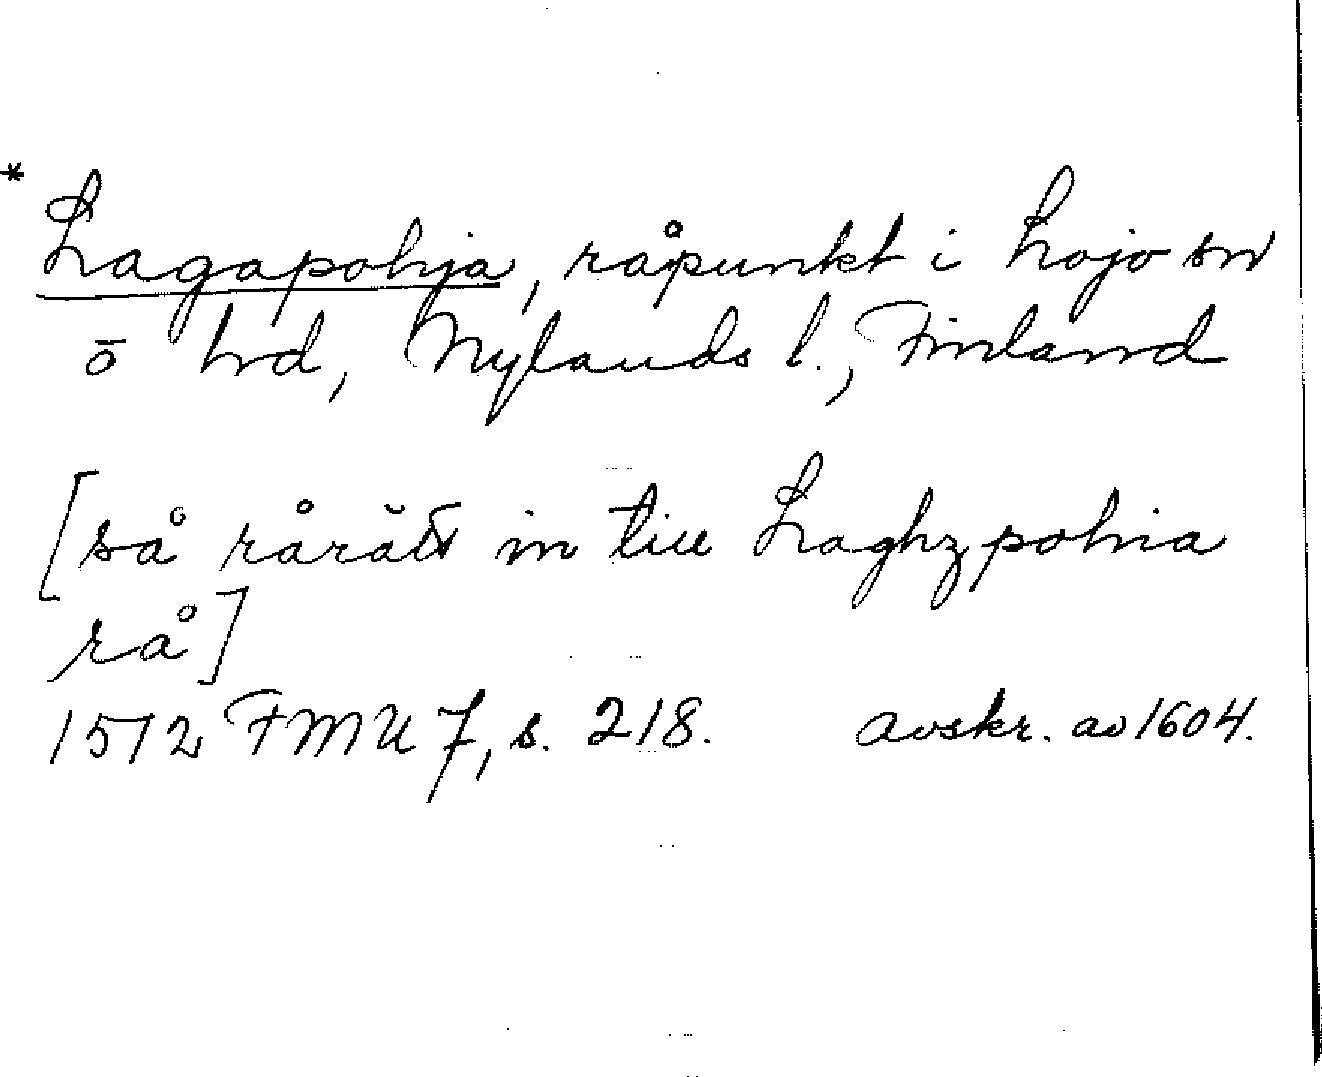 * Lagapohja, råpunkt i Lojo sn
o hd, Nylands l., Finland
[så rårätt in till Laghzpohia
rå]
1512 FMU 7, s. 218. Avskr. av 1604.